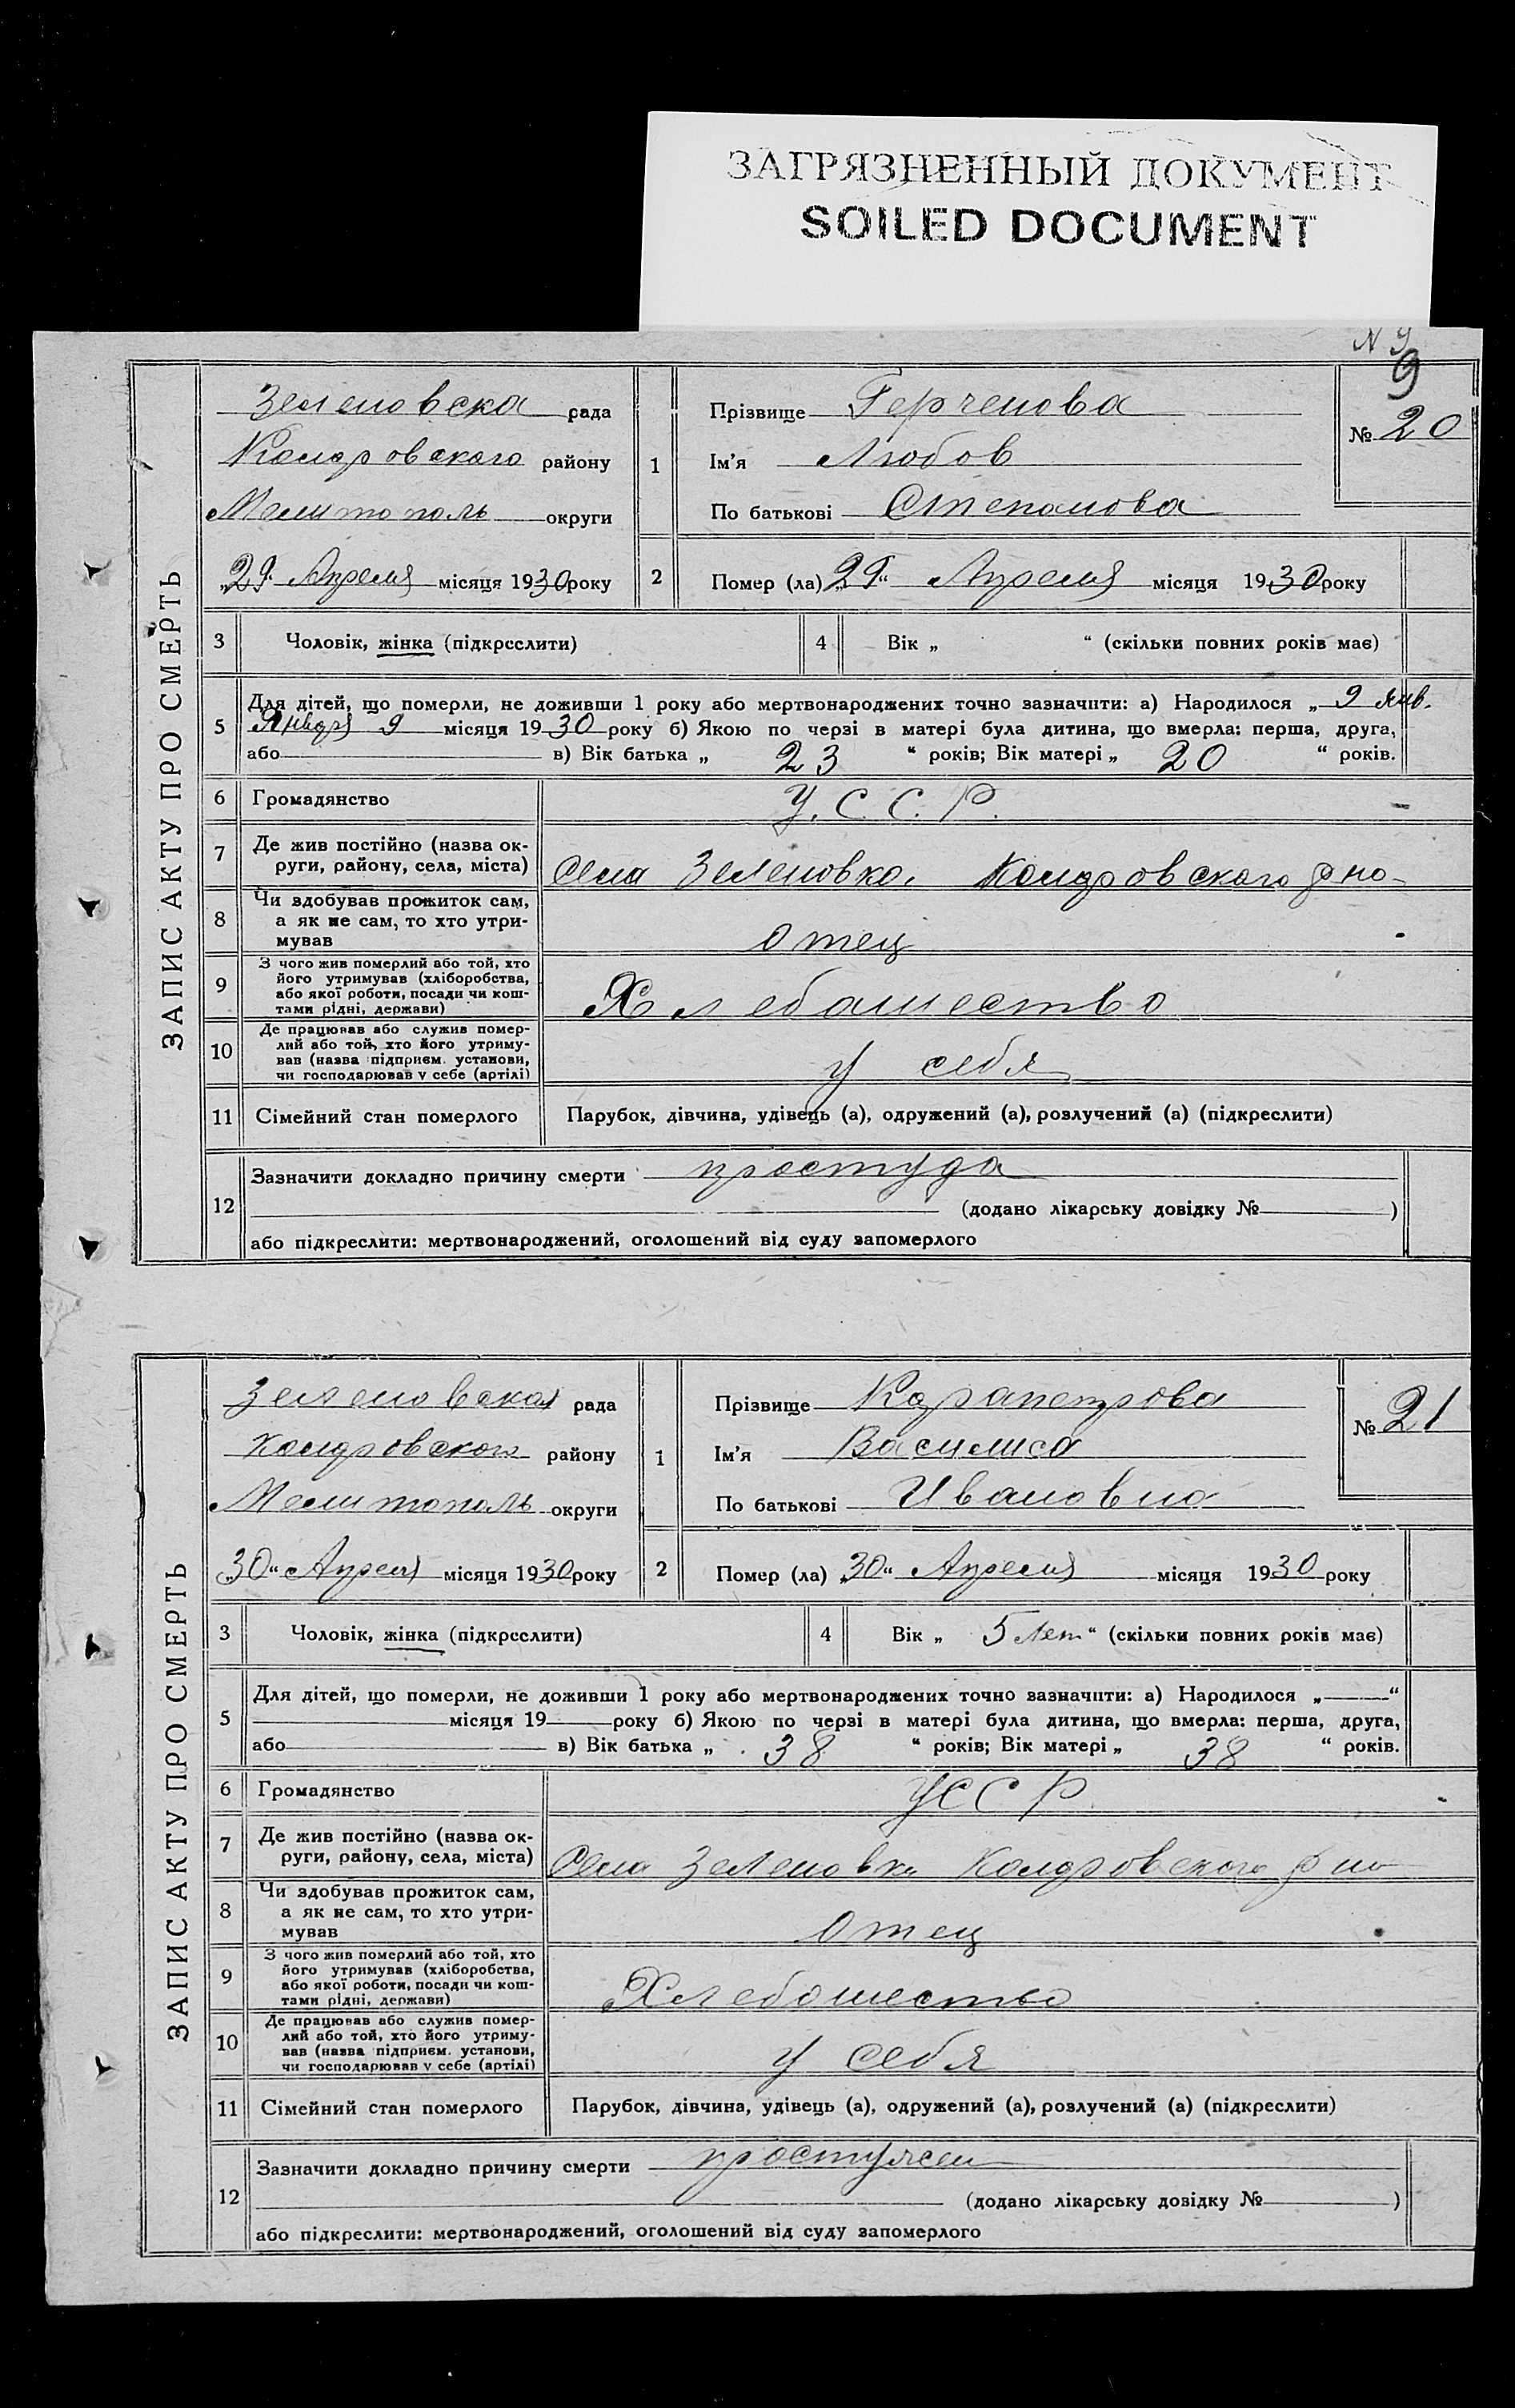 ЗАГРЯЗНЕННЫЙ ДОКУМЕНТ
SOILED DOCUMENT
N 9
9
ЗАПИС АКТУ ПРО СМЕРТЬ
Зеленовска рада
району
Мелитополь округи
„29“ Апреля місяця 1930 року
1
Прізвище Герченова
Ім'я Любов
По батькові Степанова
№ 20
2
Помер (ла) „29“ Апреля місяця 1930 року
3 Чоловік, жінка (підкреслити)
4 Вік „ “ (скільки повних років має)
5 Для дітей, що померли, не доживши 1 року або мертвонароджених точно зазначити: а) Народилося „ 9 янв.
Января 9 місяця 1930 року б) Якою по черзі в матері була дитина, що вмерла: перша, друга,
або в) Вік батька „ 23 “ років; Вік матері „ 20 “ років.
6 Громадянство У.С.С.Р.
7 Де жив постійно (назва ок-
руги, району, села, міста) Села Зеленовка
8 Чи здобував прожиток сам,
а як не сам, то хто утри-
мував отец
9 З чого жив померлий або той, хто
його утримував (хліборобства,
або якої роботи, посади чи кош-
тами рідні, держави) Хлебашество
10 Де працював або служив помер-
лий або той, хто його утриму-
вав (назва підприєм. установи,
чи господарював у себе (артілі) у себя
11 Сімейний стан померлого Парубок, дівчина, удівець (а), одружений (а), розлучений (а) (підкреслити)
12 Зазначити докладно причину смерти простуда
(додано лікарську довідку № )
або підкреслити: мертвонароджений, оголошений від суду запомерлого
ЗАПИС АКТУ ПРО СМЕРТЬ
Зеленовская рада
району
Мелитополь округи
„30“ Апреля місяця 1930 року
1
Прізвище Карапетрова
Ім'я Василиса
По батькові Ивановна
№ 21
2
Помер (ла) „30“ Апреля місяця 1930 року
3 Чоловік, жінка (підкреслити)
4 Вік „ 5 лет “ (скільки повних років має)
5 Для дітей, що померли, не доживши 1 року або мертвонароджених точно зазначити: а) Народилося „ “
місяця 19 року б) Якою по черзі в матері була дитина, що вмерла: перша, друга,
або в) Вік батька „ 38 “ років; Вік матері „ 38 “ років.
6 Громадянство УССР
7 Де жив постійно (назва ок-
руги, району, села, міста) Села Зеленовки
8 Чи здобував прожиток сам,
а як не сам, то хто утри-
мував отец
9 З чого жив померлий або той, хто
його утримував (хліборобства,
або якої роботи, посади чи кош-
тами рідні, держави) Хлебошество
10 Де працював або служив помер-
лий або той, хто його утриму-
вав (назва підприєм. установи,
чи господарював у себе (артілі) у себя
11 Сімейний стан померлого Парубок, дівчина, удівець (а), одружений (а), розлучений (а) (підкреслити)
12 Зазначити докладно причину смерти
(додано лікарську довідку № )
або підкреслити: мертвонароджений, оголошений від суду запомерлого